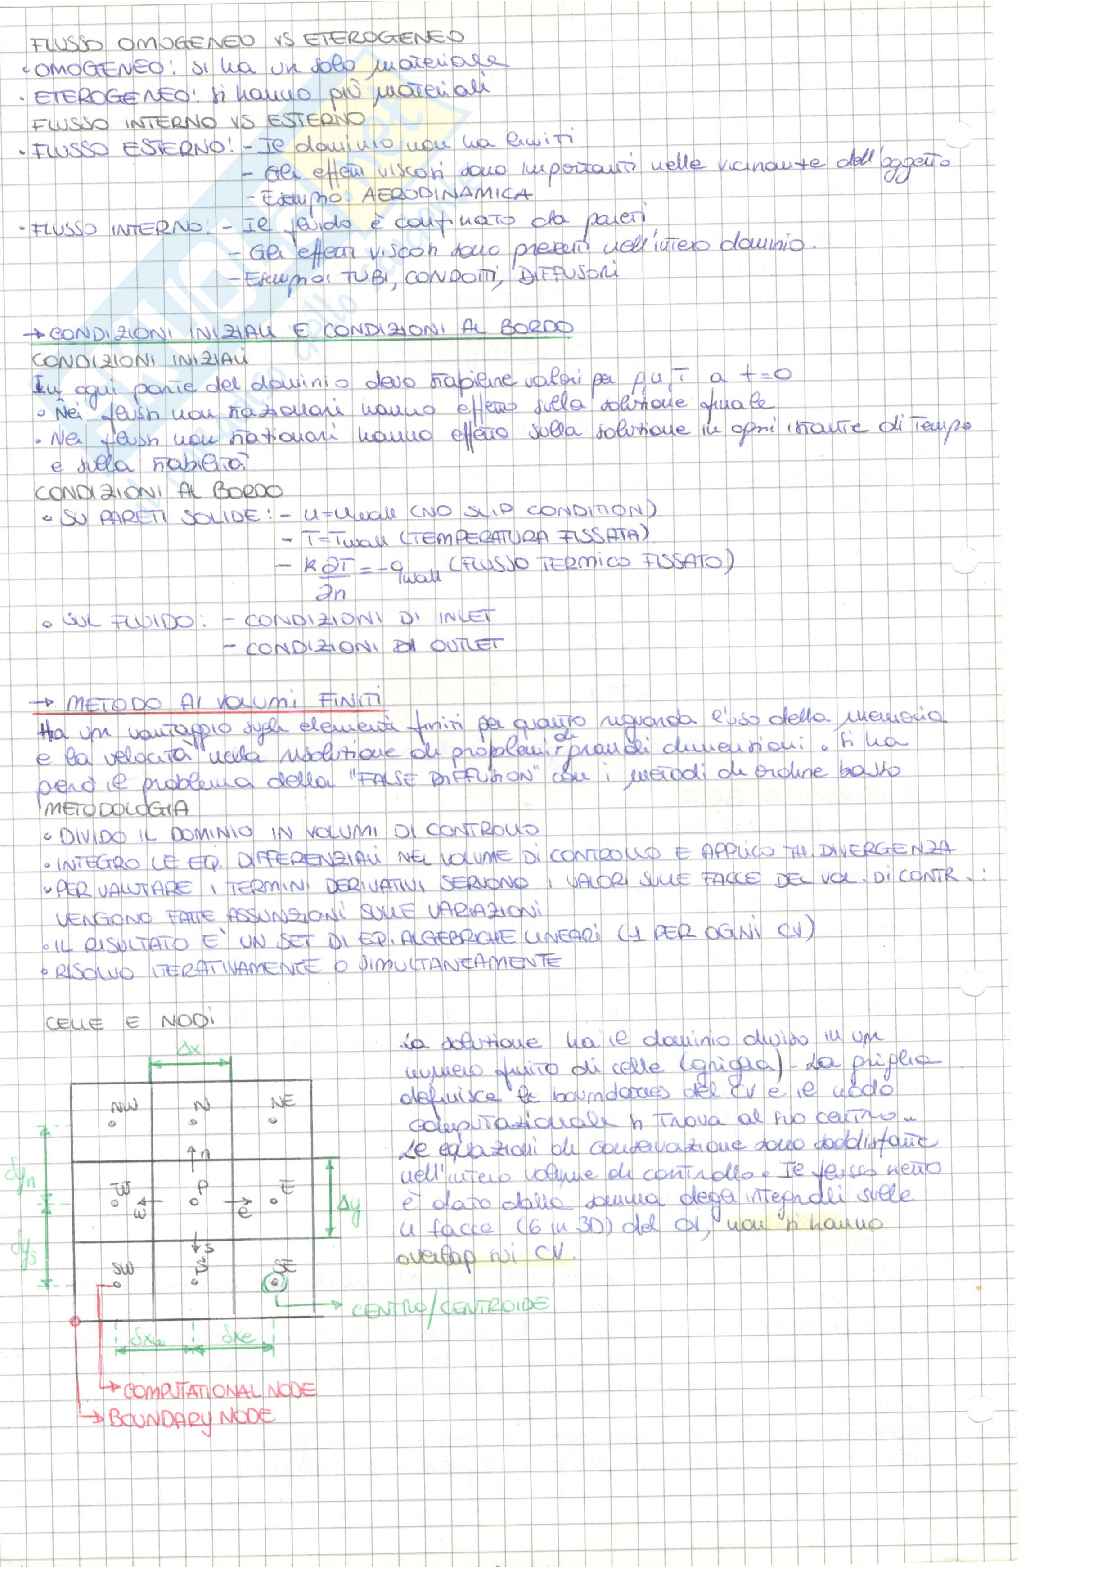 FLUSSO OMOGENEO VS ETEROGENEO
• OMOGENEO: si ha un solo materiale
• ETEROGENEO: si hanno più materiali
FLUSSO INTERNO VS ESTERNO
• FLUSSO ESTERNO: - Il dominio non ha limiti
- Gli effetti viscosi sono importanti nelle vicinanze dell'oggetto
- Esempio: AERODINAMICA
• FLUSSO INTERNO: - Il fluido è confinato da pareti
- Gli effetti viscosi sono presenti nell'intero dominio.
- Esempio: TUBI, CONDOTTI, DIFFUSORI
→ CONDIZIONI INIZIALI E CONDIZIONI AL BORDO
CONDIZIONI INIZIALI
In ogni parte del dominio devo stabilire valori per p, u, T a t=0
• Nei flussi non stazionari hanno effetto sulla soluzione finale
• Nei flussi non stazionari hanno effetto sulla soluzione in ogni istante di tempo
e sulla stabilità
CONDIZIONI AL BORDO
• SU PARETI SOLIDE: - u=uwall (NO SLIP CONDITION)
- T=Twall (TEMPERATURA FISSATA)
- k ∂T/∂n = -qwall (FLUSSO TERMICO FISSATO)
• SUL FLUIDO: - CONDIZIONI DI INLET
- CONDIZIONI DI OUTLET
→ METODO AI VOLUMI FINITI
Ha un vantaggio sugli elementi finiti per quanto riguarda l'uso della memoria
e la velocità nella risoluzione di problemi di grandi dimensioni. Si ha
però il problema della "FALSE DIFFUSION" con i metodi di ordine basso
METODOLOGIA
• DIVIDO IL DOMINIO IN VOLUMI DI CONTROLLO
• INTEGRO LE EQ. DIFFERENZIALI NEL VOLUME DI CONTROLLO E APPLICO TH. DIVERGENZA
• PER VALUTARE I TERMINI DERIVATIVI SERVONO I VALORI SULLE FACCE DEL VOL. DI CONTR.:
VENGONO FATTE ASSUNZIONI SULLE VARIAZIONI
• IL RISULTATO E' UN SET DI EQ. ALGEBRICHE LINEARI (1 PER OGNI CV)
• RISOLVO ITERATIVAMENTE O SIMULTANEAMENTE
CELLE E NODI
Δx
NW N NE
n
W w P e E
s
SW S SE
δyn
δys
Δy
δxw δxe
CENTRO/CENTROIDE
COMPUTATIONAL NODE
BOUNDARY NODE
La soluzione ha il dominio diviso in un
numero finito di celle (griglia). La griglia
definisce le boundaries del CV e il nodo
computazionale si trova al suo centro.
Le equazioni di conservazione sono soddisfatte
nell'intero volume di controllo. Il flusso netto
è dato dalla somma degli integrali sulle
4 facce (6 in 3D) del CV, non si hanno
overlap sui CV.